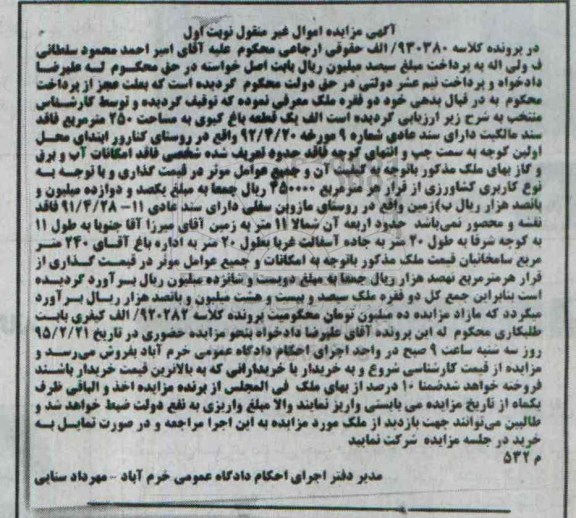 آگهی مزایده اموال غیر منقول نوبت اول
در پرونده کلاسه ۹۳۰۳۸۰/ الف حقوقی ارجاعی محکوم علیه آقای امیر احمد محمود سلطانی
ف ولی اله به پرداخت مبلغ سیصد میلیون ریال بابت اصل خواسته در حق محکوم له علیرضا
دادخواه و پرداخت نیم عشر دولتی در حق دولت محکوم گردیده است که بعلت عجز از پرداخت
محکوم به در قبال بدهی خود دو فقره ملک معرفی نموده که توقیف گردیده و توسط کارشناس
منتخب به شرح زیر ارزیابی گردیده است الف یک قطعه باغ کیوی به مساحت ۲۵۰ مترمربع فاقد
سند مالکیت دارای سند عادی شماره ۹ مورخه ۹۲/۴/۲۰ واقع در روستای کنارور ابتدای محل
اولین کوچه به سمت چپ و انتهای کوچه فاقد حدود تعریف شده شخصی فاقد امکانات آب و برق
و گاز بهای ملک مذکور باتوجه به کیفیت آن و جمیع عوامل موثر در قیمت گذاری و با توجه به
نوع کاربری کشاورزی از قرار هر مترمربع ۴۵۰۰۰۰ ریال جمعا به مبلغ یکصد و دوازده میلیون و
پانصد هزار ریال ب)زمین واقع در روستای مازوبن سفلی دارای سند عادی ۱۱- ۹۱/۴/۲۸ فاقد
نقشه و محصور نمی‌باشد حدود اربعه آن شمالا ۱۱ متر به زمین آقای میرزا آقا جنوبا به طول ۱۱
به کوچه شرقا به طول ۲۰ متر به جاده آسفالت غربا بطول ۲۰ متر به اداره باغ آقای ۲۴۰ متر
مربع سامخانیان قیمت ملک مذکور باتوجه به امکانات و جمیع عوامل موثر در قیمت گذاری از
قرار هرمترمربع نهصد هزار ریال جمعا به مبلغ دویست و شانزده میلیون ریال برآورد گردیده
است بنابراین جمع کل دو فقره ملک سیصد و بیست و هشت میلیون و پانصد هزار ریال برآورد
میگردد که مازاد مزایده ده میلیون تومان محکومیت پرونده کلاسه ۹۲۰۲۸۲/ الف کیفری بابت
طلبکاری محکوم له این پرونده آقای علیرضا دادخواه بنحو مزایده حضوری در تاریخ ۹۵/۲/۲۱
روز سه شنبه ساعت ۹ صبح در واحد اجرای احکام دادگاه عمومی خرم آباد بفروش می‌رسد و
مزایده از قیمت کارشناسی شروع و به خریدار یا خریدارانی که به بالاترین قیمت خریدار باشند
فروخته خواهد شدضمنا ۱۰ درصد از بهای ملک فی المجلس از برنده مزایده اخذ و الباقی ظرف
یکماه از تاریخ مزایده می بایستی واریز نمایند والا مبلغ واریزی به نفع دولت ضبط خواهد شد و
طالبین می‌توانند جهت بازدید از ملک مورد مزایده به این اجرا مراجعه و در صورت تمایل به
خرید در جلسه مزایده شرکت نمایید
م ۵۳۲
مدیر دفتر اجرای احکام دادگاه عمومی خرم آباد - مهرداد سنایی